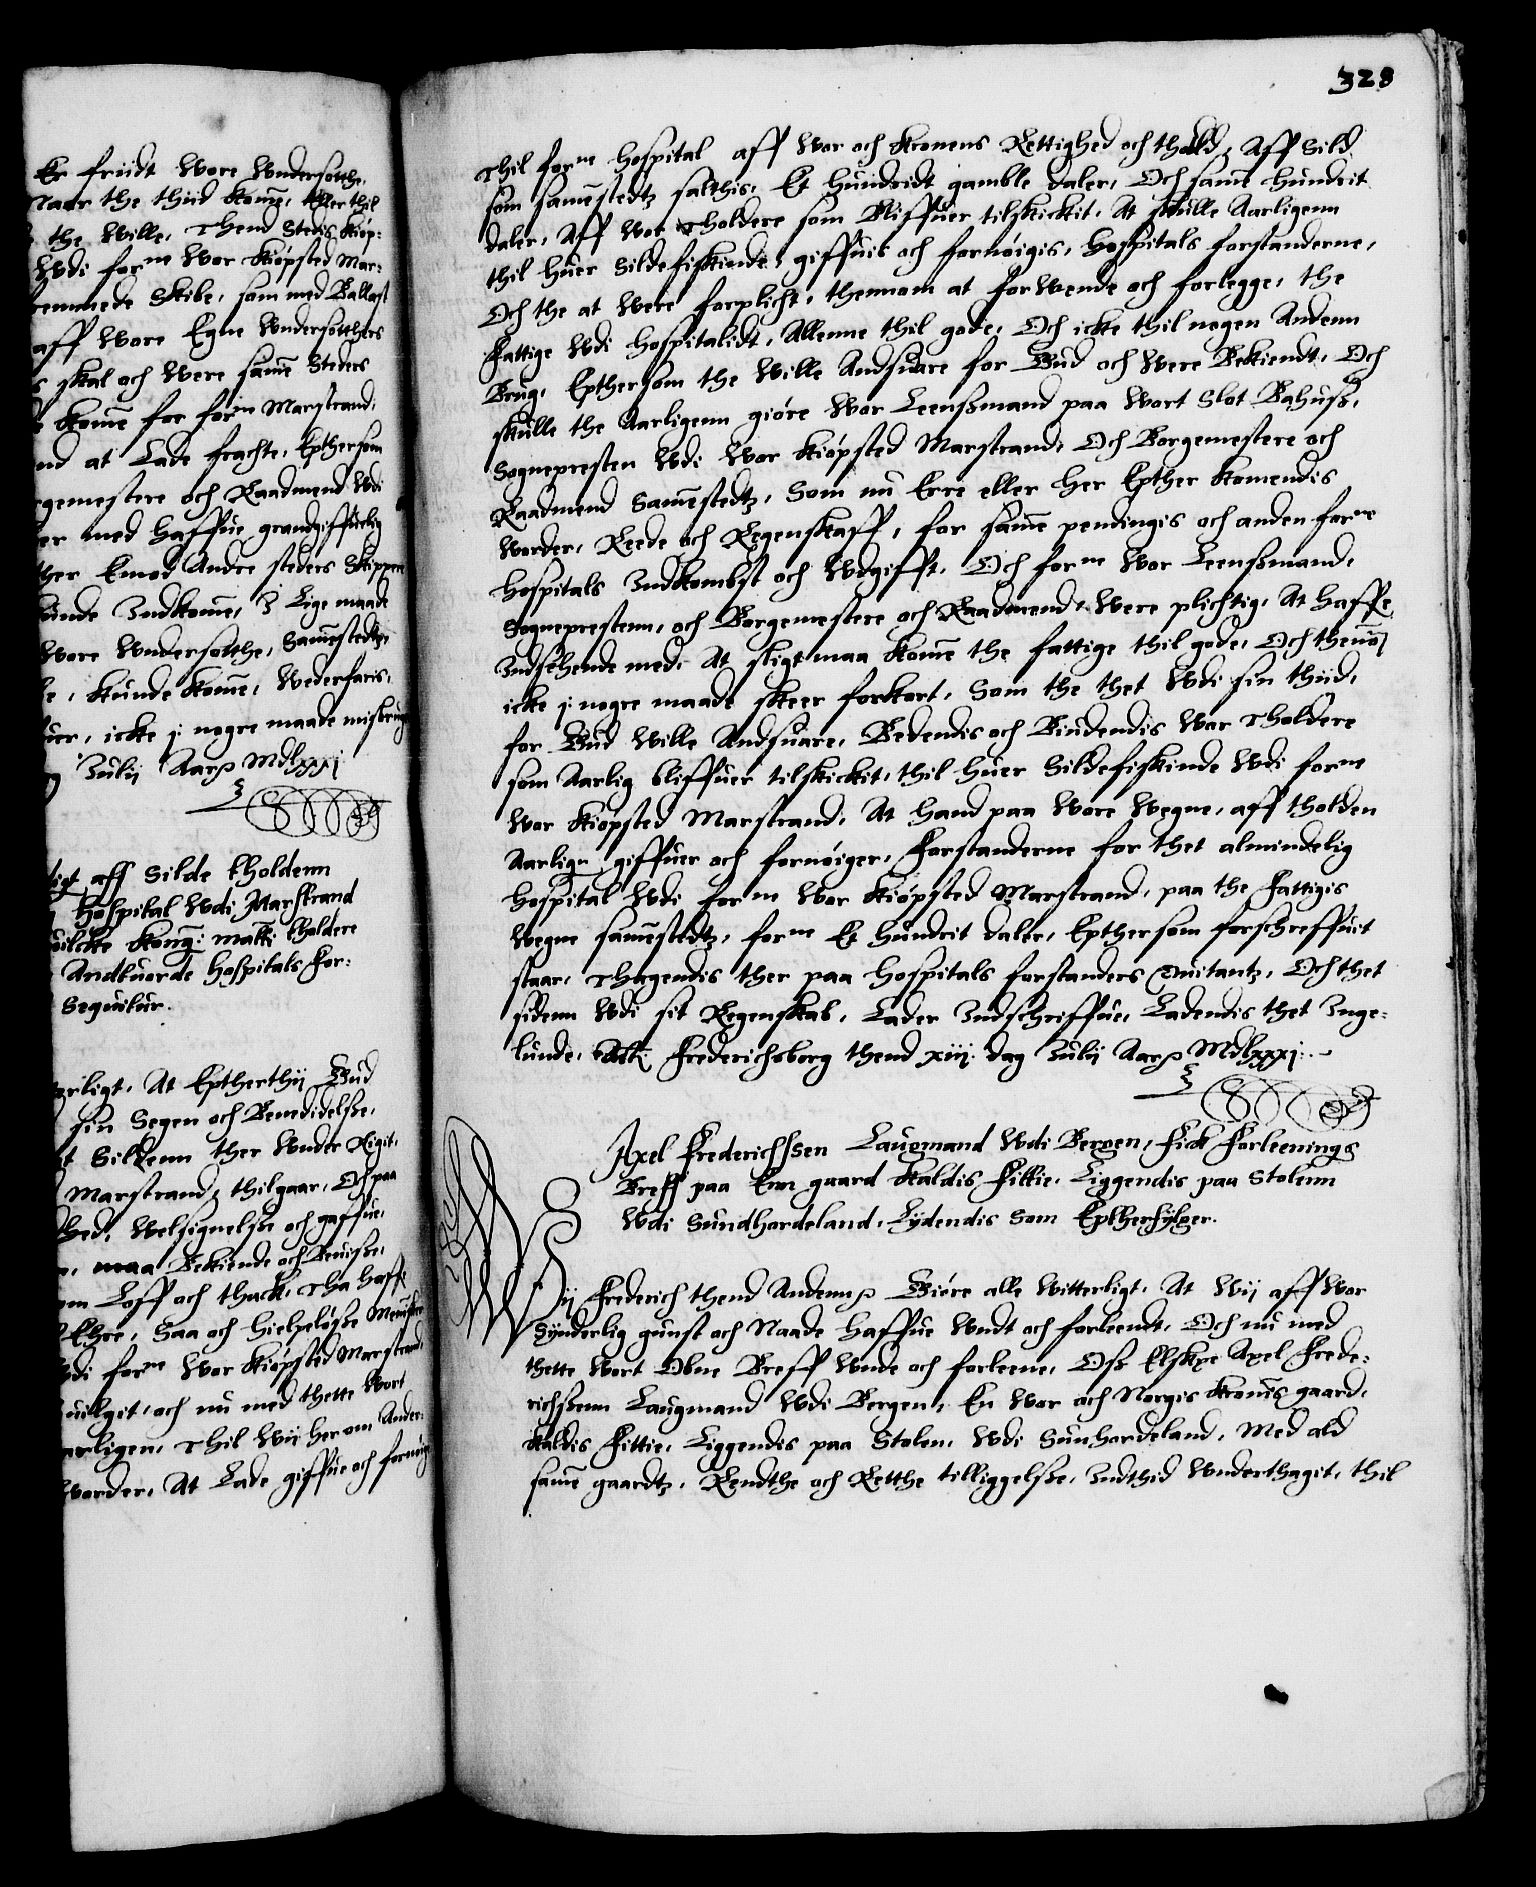 Er friidt Wore Wndersotthe,
naar the thiid Komē, Eller thil
the Wille, Thend Stedis Kiöp-
Wdi forne Wor Kiöpsted Mar-
remmede Skibe, som med Ballast
aff Wore Egne Wndersotthers
skal och Were samē Steders
Komē for forne Marstrand,
nd at Lade frachte, Epthersom
rgemestere och Raadmend Wdi
er med Haffue grandgiffuelig
ther Emod Andre steders Skippere
kunde Indkomē, I Lige maade
Wore Wndersotthe, Samēstedtz,
le, Kunde Komē, Wederfaris,
uer, icke j nogre maade misbrug
Julij Aar p Mdlxxxj
ligt aff Silde tholdenn
Hospital Wdi Marstrand
uilcke Kong: matt: tholdere
Andtuorde Hospitals For-
Sequitur.
terligt, At Eptherthij Gud
sin Segen och Benedidelsse,
t Sildenn ther Wnder Rigit,
Marstrand, thilgaar, Och paa
hed, Welsignelsse och gaffue,
maa Bekiende och Beuisse,
om Loff och thack, Tha Haffe
Ehre, Saa och Hielpeløsse Mennisker
Wdi forne Wor Kiöpsted Marstrand,
uilgit, och nu med thette Wort
arligen, Thil Wij Her om Ander-
Worder, At Lade giffue och fornøige
328
Thil forne Hospital aff Wor och Kronens Rettighed och thold, Aff Sild
som samēstedtz salthis, Et Hundridt gamble daler, Och samē Hundrit
daler, Aff Wor Tholdere som Bliffuer tilskickit, At skulle Aarligenn
thil Huer Sildefiskinde, giffuis och fornøigis, Hospitals forstanderne,
Och the at Were forplicht, thennom at forWende och forlegge, the
Fattige Wdi Hospitalidt, Allenne thil gode, Och icke thil nogen Andenn
Brug, Epthersom the Wille Andsuare for Gud och Were Bekiendt, Och
skulle the Aarligenn giöre Wor Leenssmand paa Wort Slot Bahuss,
Sognepresten Wdi Wor Kiöpsted Marstrand, Och Borgemestere och
Raadmend Samēstedtz, Som nu Erre eller Her Epther Komendis
Worder, Reede och Regenskaff, for samē pendingis och anden forne
Hospitals Indkombst och Wdgifft, Och forne Wor Leenssmand,
Sogneprestenn, och Borgemestere och Raadmend, Were plichtig, At Haffe
Indsehende med, At sligt maa Komē the fattige thil gode, Och thenō
icke j nogre maade skeer forkort, Som the thet Wdi sin thiid,
for Gud Wille Andsuare, Bedendis och Biudendis Wor Tholdere
som Aarlig bliffuer tilskickit, thil Huer Sildefiskinde Wdi forne
Wor Kiöpsted Marstrand, At Hand paa Wore Wegne, aff tholden
Aarlign giffuer och fornøiger, Forstanderne for thet almindelig
Hospital Wdi forne Wor Kiöpsted Marstrand, paa the Fattigis
Wegne samēstedtz, forne Et Hundrit daler, Epthersom forschreffuit
staar, Thagendis ther paa Hospitals forstanders Quitantz, Och thet
sidenn Wdi sit Regenskab, Lader Indschriffue, Ladendis thet Inge-
lunde, Frederichsborg thend xiij dag Julij Aar p Mdlxxxj.
Axel Frederichssen Laugmand Wdi Bergen, Fick Forleenings
Breff paa Enn gaard Kaldis Fittie, Liggendis paa Stolenn
Wdi Sundhordeland, Lydendis Som Eptherfylger.
Wij Frederich thend Andenn p Giöre alle Witterligt, At Wij aff Wor
Synderlig gunst och Naade Haffue Wndt och forleendt, Och nu med
thette Wort Obne Breff Wnde och forleene, Oss Elskxe Axel Frede-
richssenn Laugmand Wdi Bergen, En Wor och Norgis Kronis gaard,
Kaldis Fittie, Liggendis paa Stolen, Wdi Sunhordeland, Med ald
samē gaardtz, Rendthe och Retthe tilliggelsse, Indthid Wnderthagit, thil